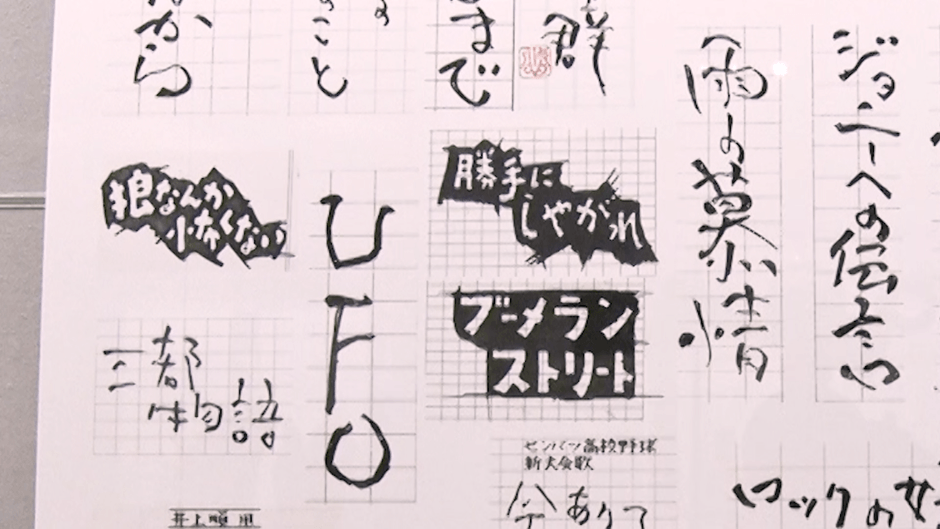 から
のこと
まで
群
雨の慕情
ジョニーへの伝言
狼なんか
怖くない
UFO
勝手に
しやがれ
ブーメラン
ストリート
三都
物語
センバツ高校野球
新大会歌
今ありて
井上順用
ロックの女